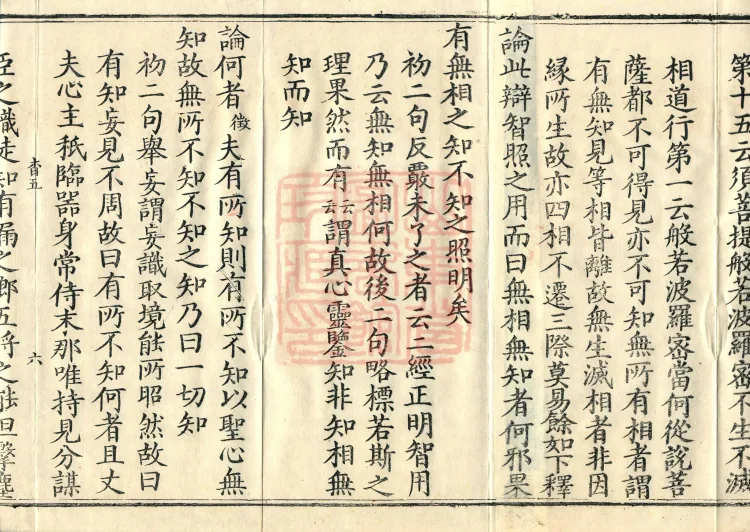 第十五云須菩提般若波羅密不生不滅
相道行第一云般若波羅密當何從說菩
薩都不可得見亦不可知無所有相者謂
有無知見等相皆離故無生滅相者非因
緣所生故亦四相不遷三際莫易餘如下釋
論此辯智照之用而曰無相無知者何邪果
有無相之知不知之照明矣
初二句反覈未了之者云二經正明智用
乃云無知無相何故後二句略標若斯之
理果然而有云云謂真心靈鑒知非知相無
知而知
論何者徵夫有所知則有所不知以聖心無
知故無所不知不知之知乃曰一切知
初二句舉妄謂妄識取境能所昭然故曰
有知妄見不周故曰有所不知何者且丈
夫心主秖臨器身常侍末那唯持見分謀
杳五
六
臣之識走知有漏之鄉五將之能但擊塵